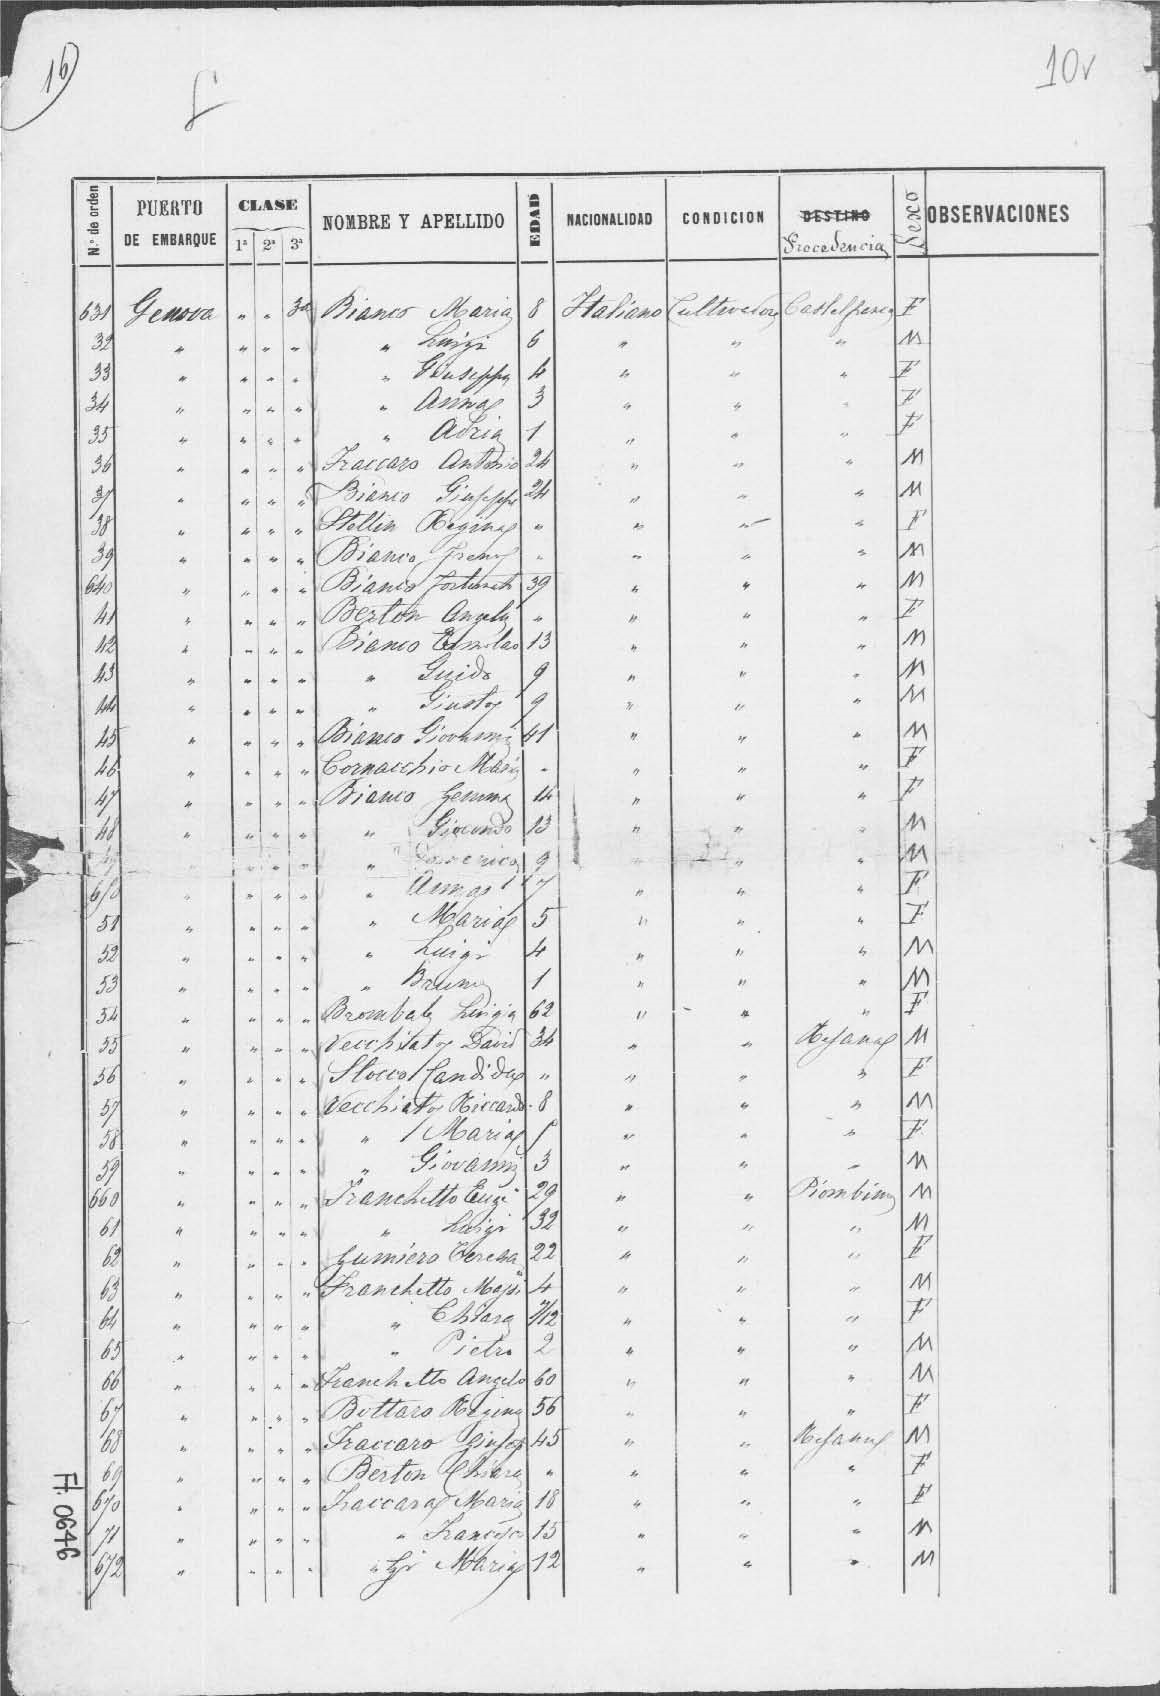 16
10v
N.º de orden PUERTO DE EMBARQUE CLASE 1ª 2ª 3ª NOMBRE Y APELLIDO EDAD NACIONALIDAD CONDICION DESTINO Procedencia Sexo OBSERVACIONES
631 Genova " " 3ª Bianco Maria 8 Italiano Cultivador F
32 " " " " " Luigi 6 " " " M
33 " " " " " Giuseppa 4 " " " F
34 " " " " " Anna 3 " " " F
35 " " " " " Adria 1 " " " F
36 " " " " Fraccaro Antonio 24 " " " M
37 " " " " Bianco Giuseppe 24 " " " M
38 " " " " Stellin Regina " " " " F
39 " " " " Bianco " " " " M
640 " " " " Bianco Fortunato 39 " " " M
41 " " " " Berton Angela " " " " F
42 " " " " Bianco 13 " " " M
43 " " " " " Guido 9 " " " M
44 " " " " " Giusto 9 " " " M
45 " " " " Bianco Giovanni 41 " " " M
46 " " " " Cornacchio Maria " " " " F
47 " " " " Bianco Gemma 14 " " " F
48 " " " " " Giocondo 13 " " " M
" " " " " Domenico 9 " " " M
650 " " " " " Anna 7 " " " F
51 " " " " " Maria 5 " " " F
52 " " " " " Luigi 4 " " " M
53 " " " " " Bruno 1 " " " M
54 " " " " Luigia 62 " " " F
55 " " " " Vecchiato David 34 " " Resana M
56 " " " " Stocco Candida " " " " F
57 " " " " Vecchiato Riccardo 8 " " " M
58 " " " " " Maria " " " F
59 " " " " " Giovanni 3 " " " M
660 " " " " Franchetto Eug. 29 " " Piombino M
61 " " " " " Luigi 32 " " " M
62 " " " " Gumiero Teresa 22 " " " F
63 " " " " Franchetto 4 " " " M
64 " " " " " Chiara 7/12 " " " F
65 " " " " " Pietro 2 " " " M
66 " " " " Franchetto Angelo 60 " " " M
67 " " " " Bottaro Regina 56 " " " F
68 " " " " Fraccaro Giusep 45 " " Resana M
69 " " " " Berton Chiara " " " " F
670 " " " " Fraccaro Maria 18 " " " F
71 " " " " " Francesco 15 " " " M
672 " " " " " Maria 12 " " " M
A. 0646